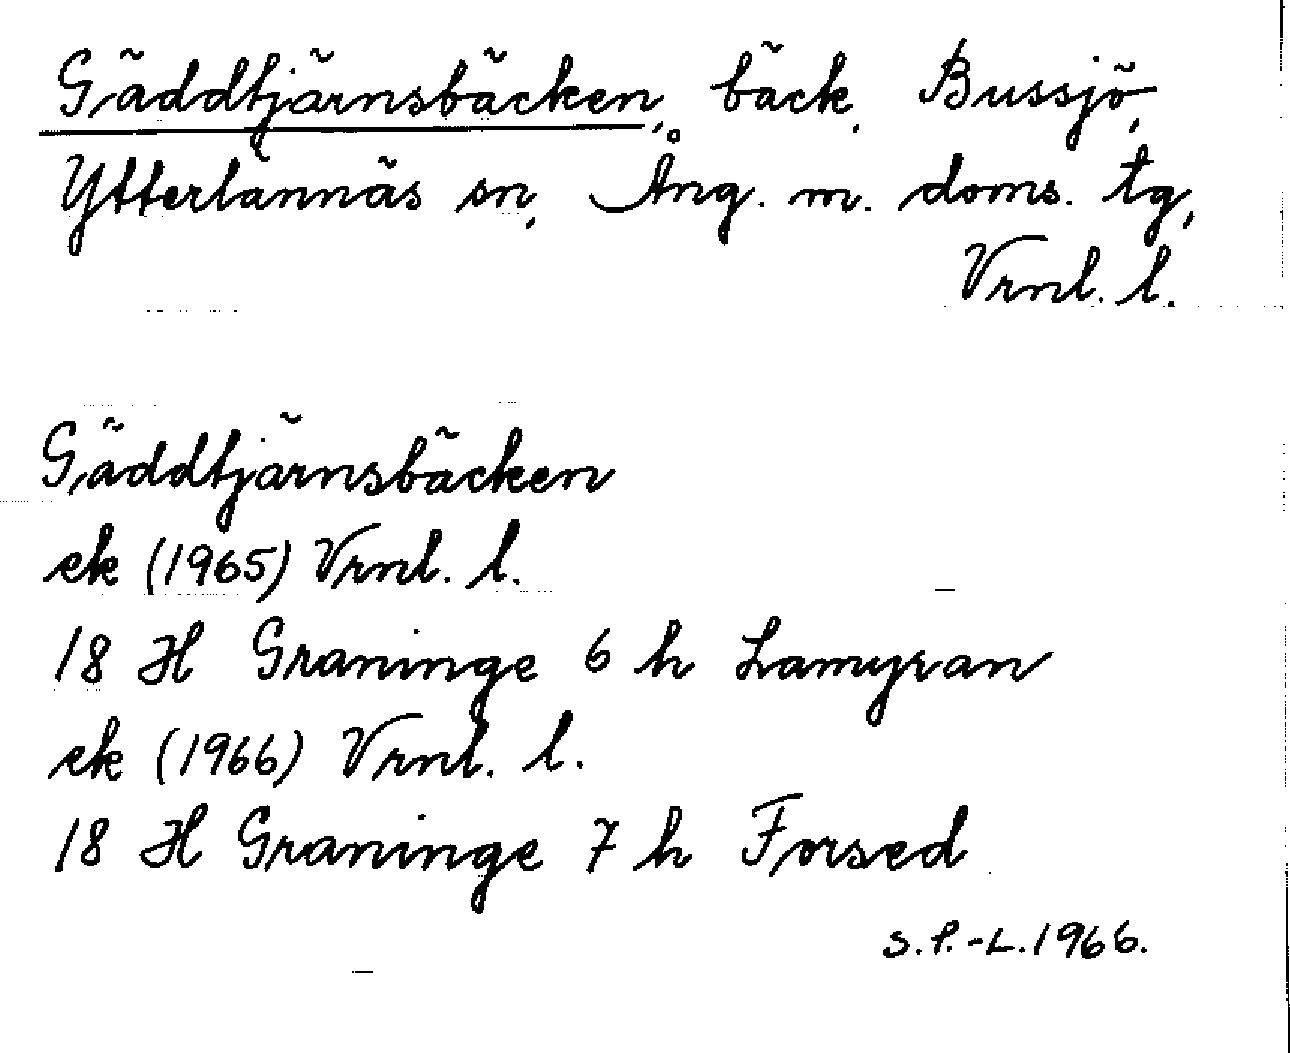 Gäddtjärnsbäcken, bäck, Bussjö,
Ytterlännäs sn, Ång. m. doms. tg,
Vrnl. l.
Gäddtjärnsbäcken
ek (1965) Vrnl. l.
18 H Graninge 6 h Lamyran
ek (1966) Vrnl. l.
18 H Graninge 7 h Forsed
S.P.-L. 1966.